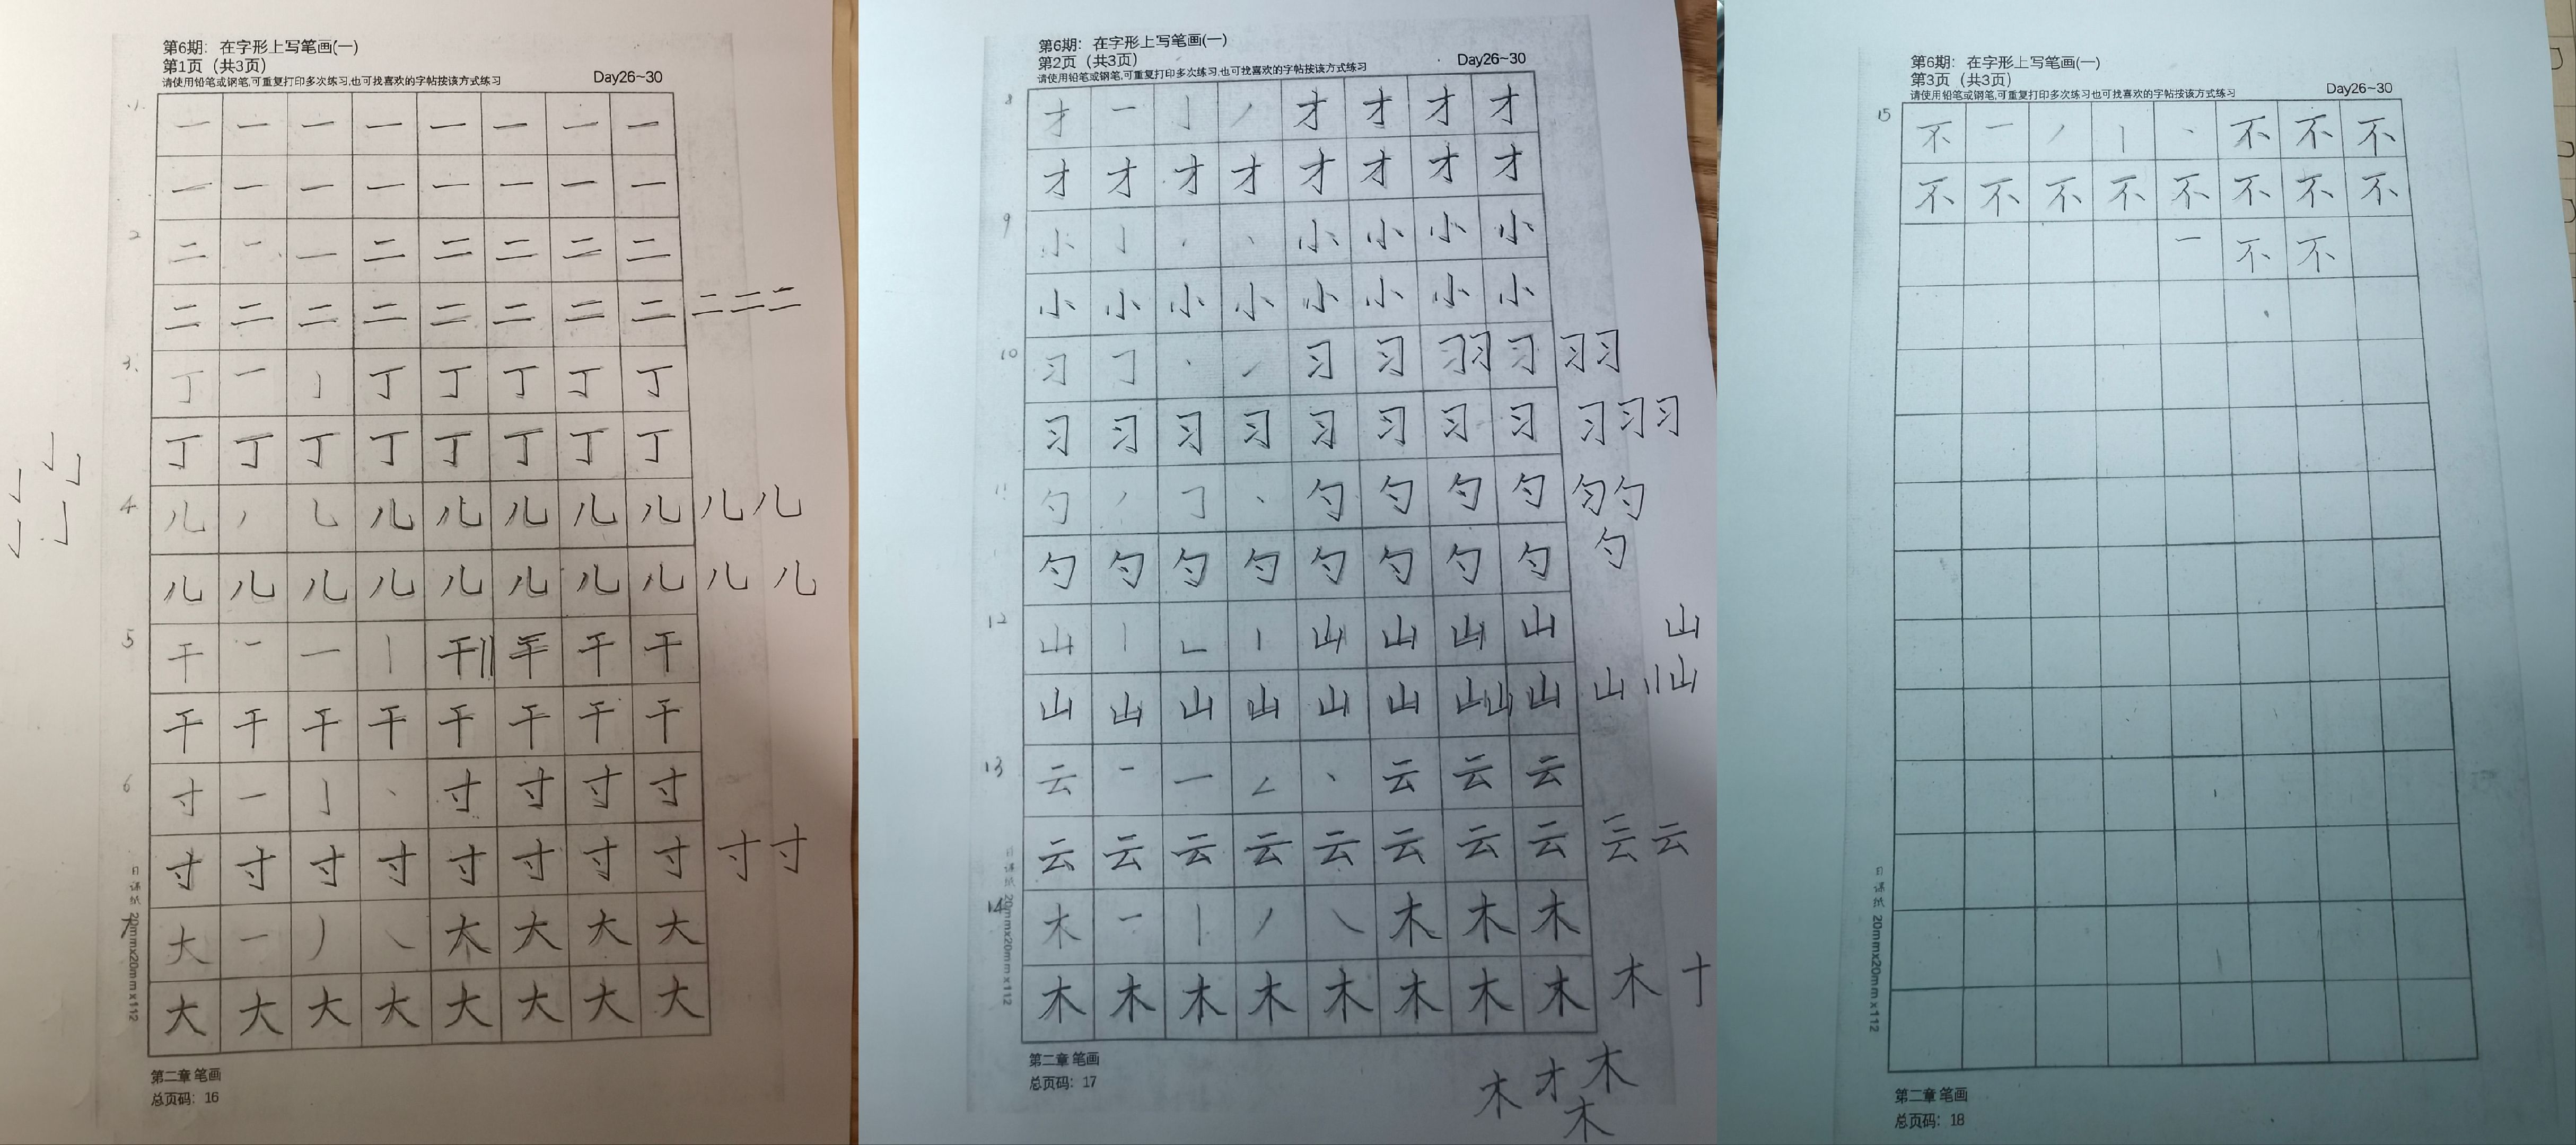 第6期：在字形上写笔画(一)
第1页（共3页）
请使用铅笔或钢笔,可重复打印多次练习,也可找喜欢的字帖按该方式练习 Day26~30
1. 一 一 一 一 一 一 一 一
一 一 一 一 一 一 一 一
2 二 一 一 二 二 二 二 二
二 二 二 二 二 二 二 二 二 二 二
3. 丁 一 亅 丁 丁 丁 丁 丁
丁 丁 丁 丁 丁 丁 丁 丁
亅 亅 亅 亅 亅
4 儿 丿 乚 儿 儿 儿 儿 儿 儿 儿
儿 儿 儿 儿 儿 儿 儿 儿 儿 儿
5 干 一 一 丨 干 丨 丨 干 干 干
干 干 干 干 干 干 干 干
6 寸 一 亅 丶 寸 寸 寸 寸
寸 寸 寸 寸 寸 寸 寸 寸 寸 寸
7 大 一 丿 ㇏ 大 大 大 大
大 大 大 大 大 大 大 大
日课纸 20mmx20mm x112
第二章 笔画
总页码：16
第6期：在字形上写笔画(一)
第2页（共3页）
请使用铅笔或钢笔,可重复打印多次练习,也可找喜欢的字帖按该方式练习 Day26~30
8 才 一 亅 丿 才 才 才 才
才 才 才 才 才 才 才 才
9 小 亅 丶 丶 小 小 小 小
小 小 小 小 小 小 小 小
10 习 𠃌 丶 ㇀ 习 习 习 习 习 习 习
习 习 习 习 习 习 习 习 习 习 习
11 勺 丿 𠃌 丶 勺 勺 勺 勺 勺 勺
勺
勺 勺 勺 勺 勺 勺 勺 勺
12 山 丨 ㇗ 丨 山 山 山 山 山
山 山 山 山 山 山 山 山 山 山 丨 丨 山
13 云 一 一 ㇜ 丶 云 云 云
云 云 云 云 云 云 云 云 云 云
14 木 一 丨 丿 ㇏ 木 木 木
木 木 木 木 木 木 木 木 木 十
木 才 木
木
日课纸 20mmx20mm x112
第二章 笔画
总页码：17
第6期：在字形上写笔画(一)
第3页（共3页）
请使用铅笔或钢笔,可重复打印多次练习也可找喜欢的字帖按该方式练习 Day26~30
15 不 一 丿 丨 丶 不 不 不
不 不 不 不 不 不 不 不
一 不 不
日课纸 20mmx20mm x112
第二章 笔画
总页码：18